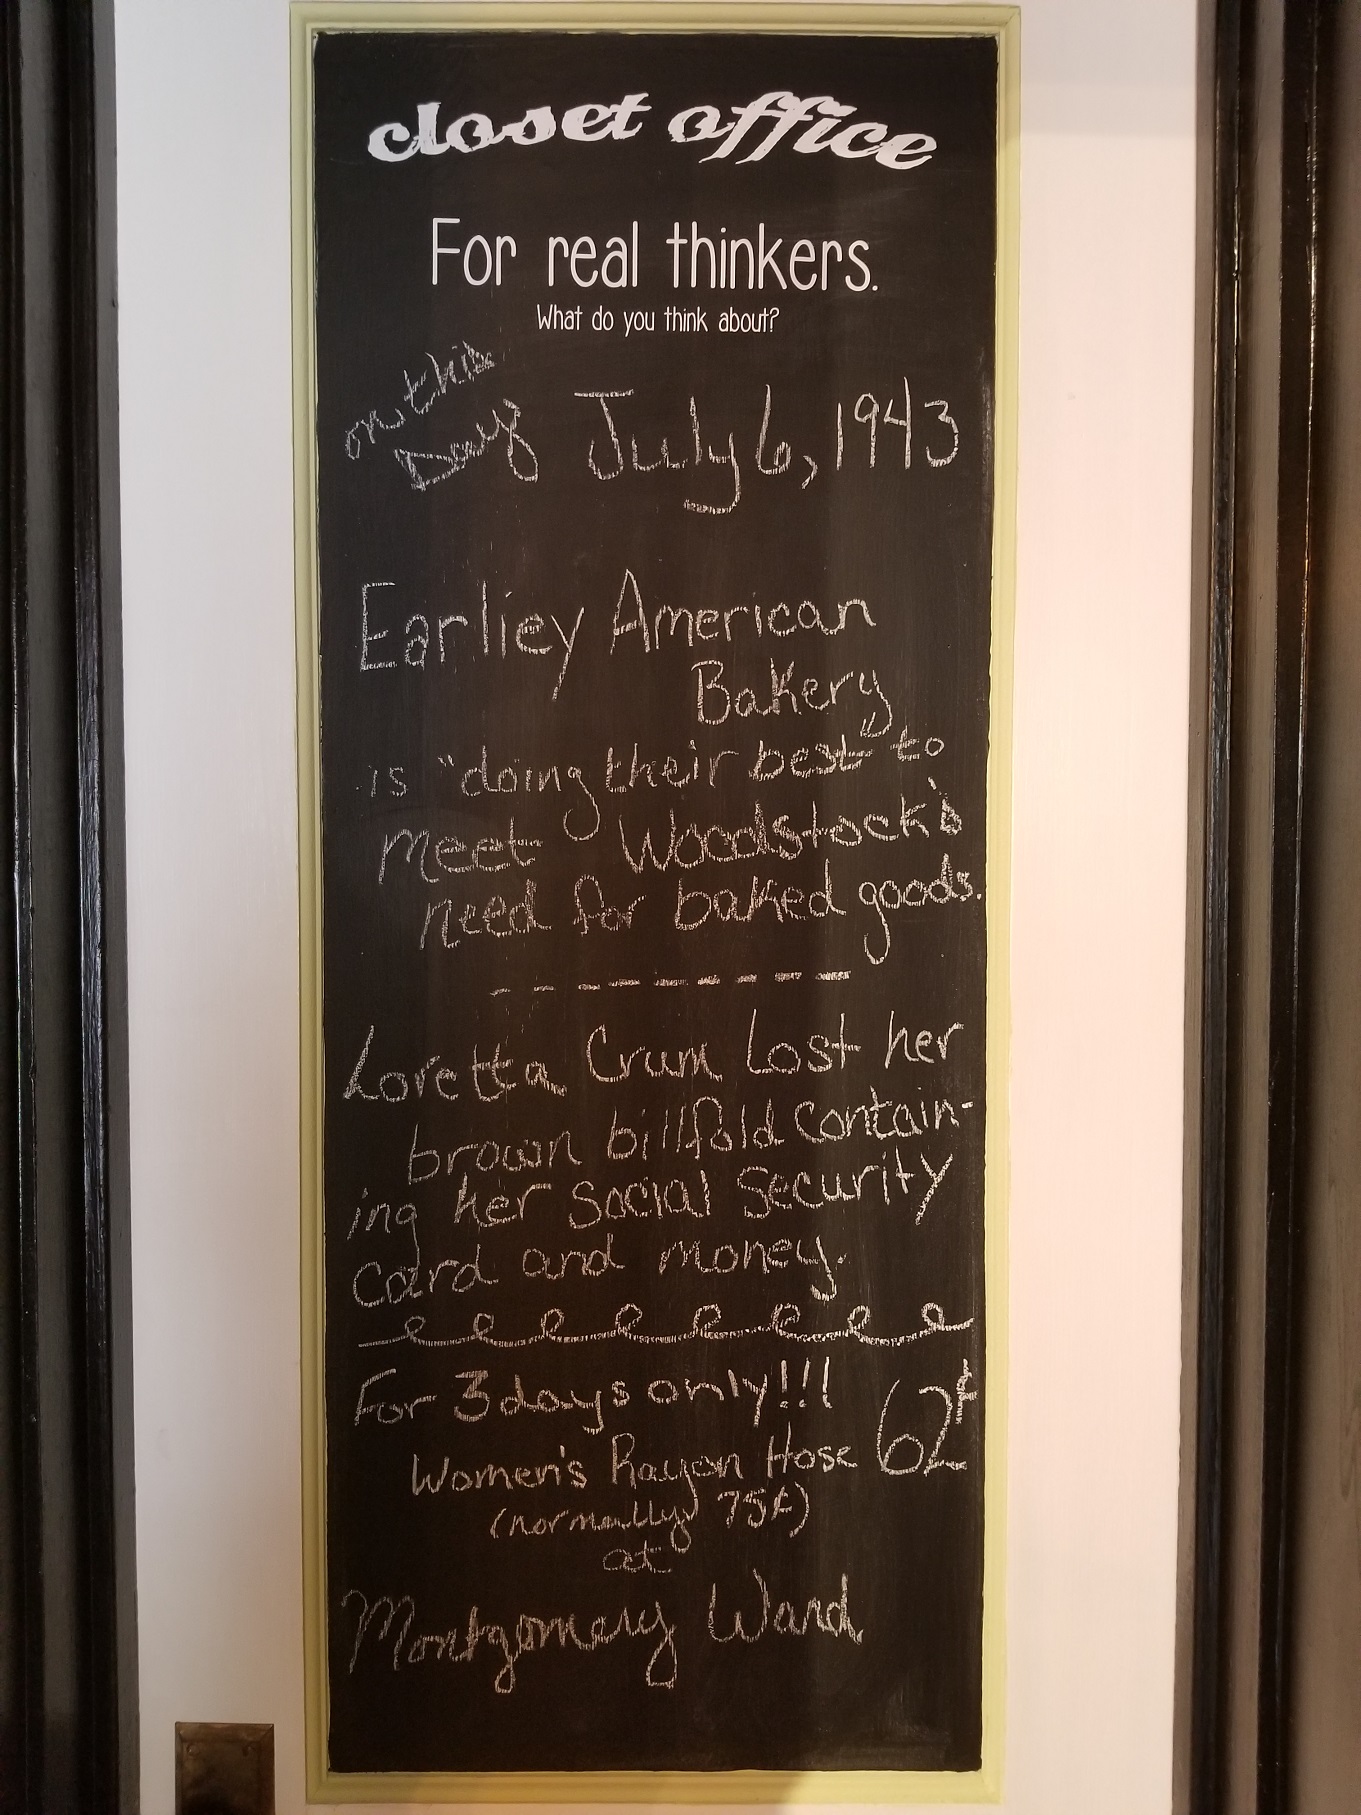 closet office
For real thinkers.
What do you think about?
on this
Day July 6, 1943
Earliey American
Bakery
is "doing their best" to
meet Woodstock's
need for baked goods.
- - - - - - - - -
Loretta Crum Lost her
brown billfold contain-
ing her Social Security
card and money.
For 3 days only!!!
Women's Rayon Hose 62¢
(normally 75¢)
at
Montgomery Ward